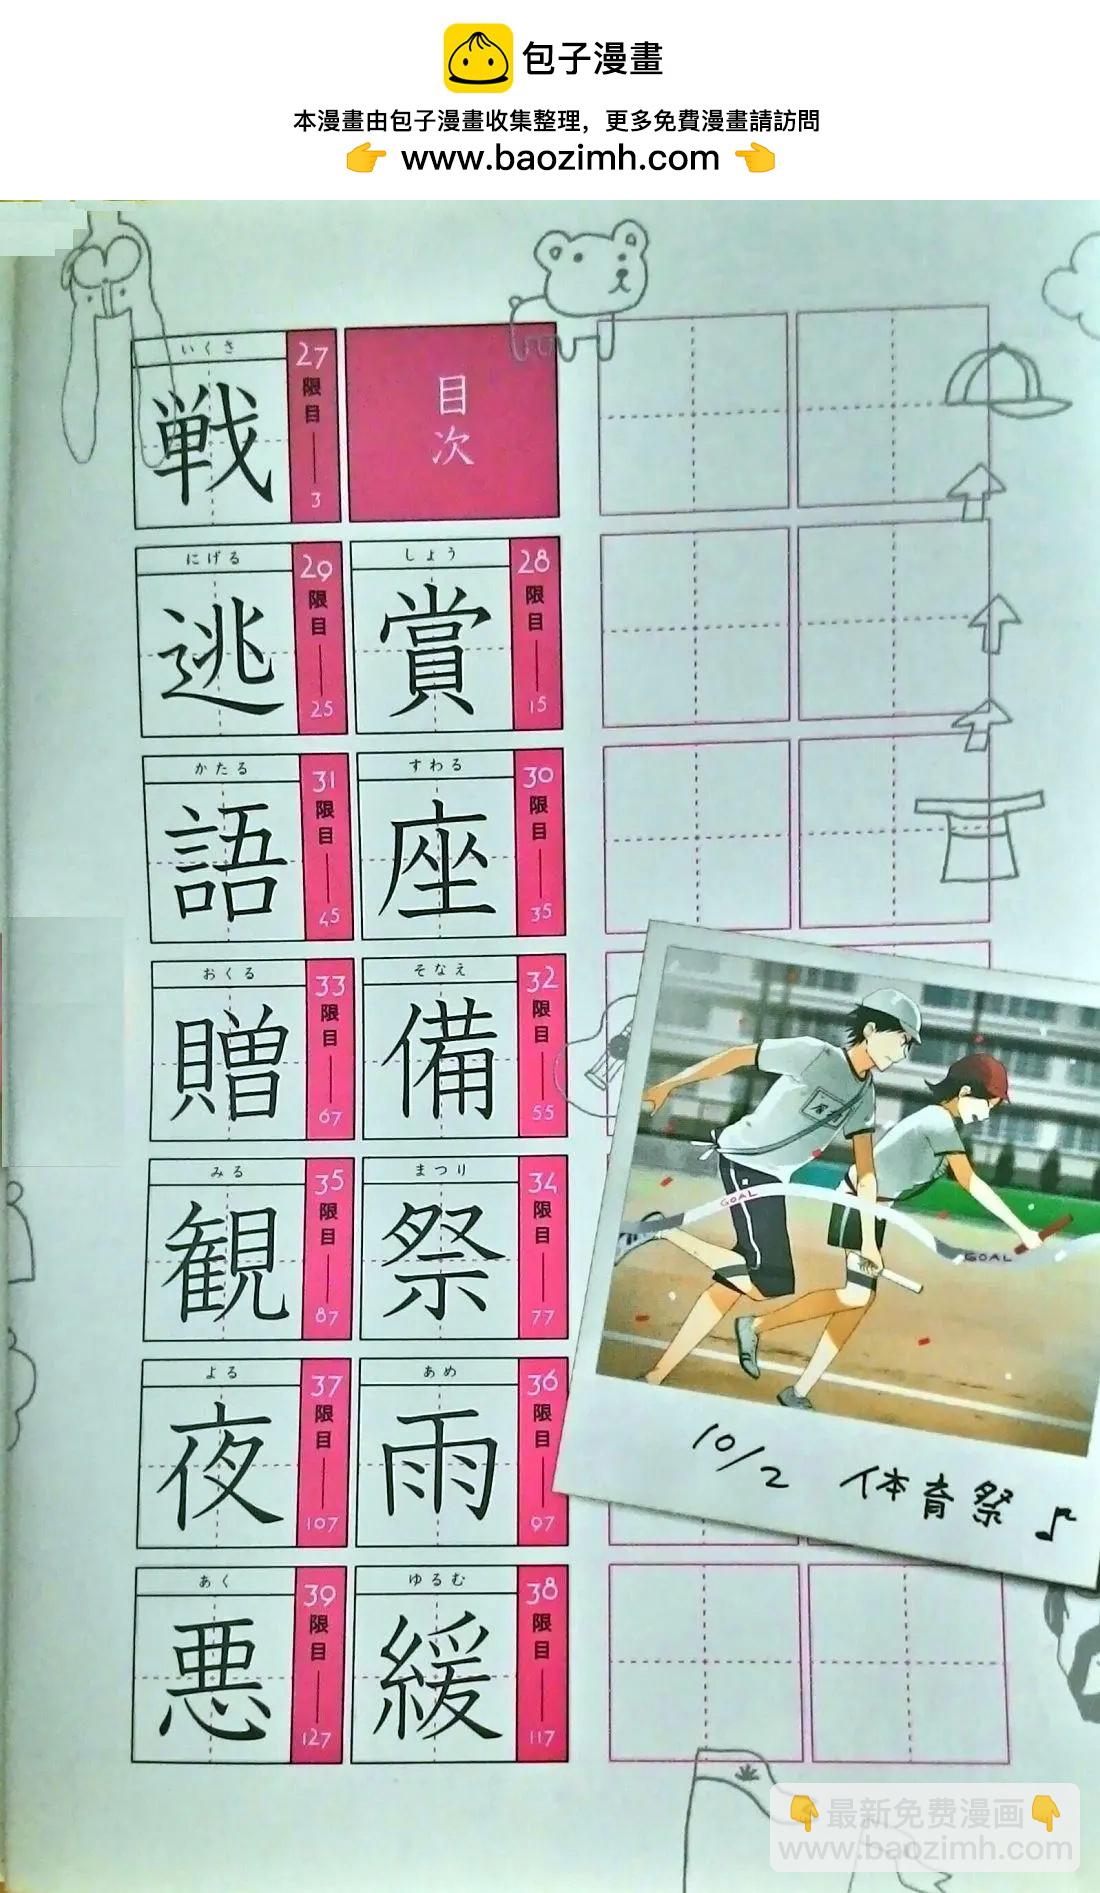 包子漫畫
本漫畫由包子漫畫收集整理，更多免費漫畫請訪問
www.baozimh.com
目次
27限目 3
いくさ
戦
28限目 15
しょう
賞
29限目 25
にげる
逃
30限目 35
すわる
座
31限目 45
かたる
語
32限目 55
そなえ
備
33限目 67
おくる
贈
34限目 77
まつり
祭
35限目 87
みる
観
36限目 97
あめ
雨
37限目 107
よる
夜
38限目 117
ゆるむ
緩
39限目 127
あく
悪
GOAL
GOAL
10/2 体育祭♪
最新免费漫画
www.baozimh.com